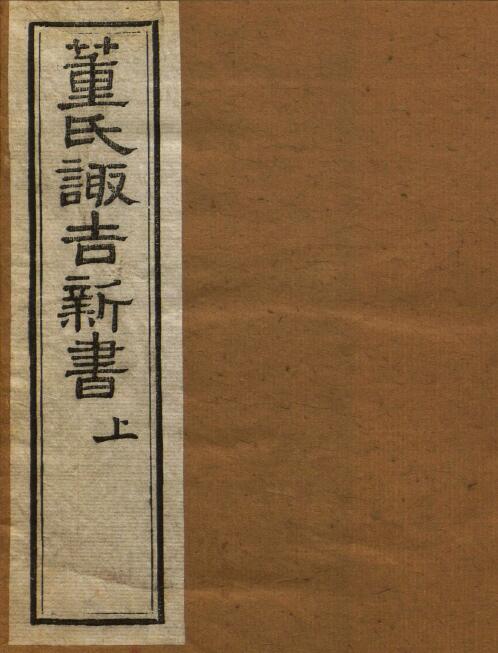 董氏諏吉新書
上